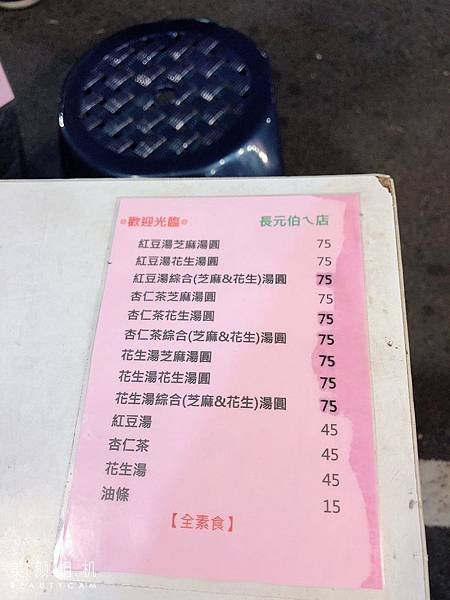 歡迎光臨 長元伯ㄟ店
紅豆湯芝麻湯圓 75
紅豆湯花生湯圓 75
紅豆湯綜合(芝麻&花生)湯圓 75
杏仁茶芝麻湯圓 75
杏仁茶花生湯圓 75
杏仁茶綜合(芝麻&花生)湯圓 75
花生湯芝麻湯圓 75
花生湯花生湯圓 75
花生湯綜合(芝麻&花生)湯圓 75
紅豆湯 45
杏仁茶 45
花生湯 45
油條 15
【全素食】
美颜相机
BEAUTYCAM